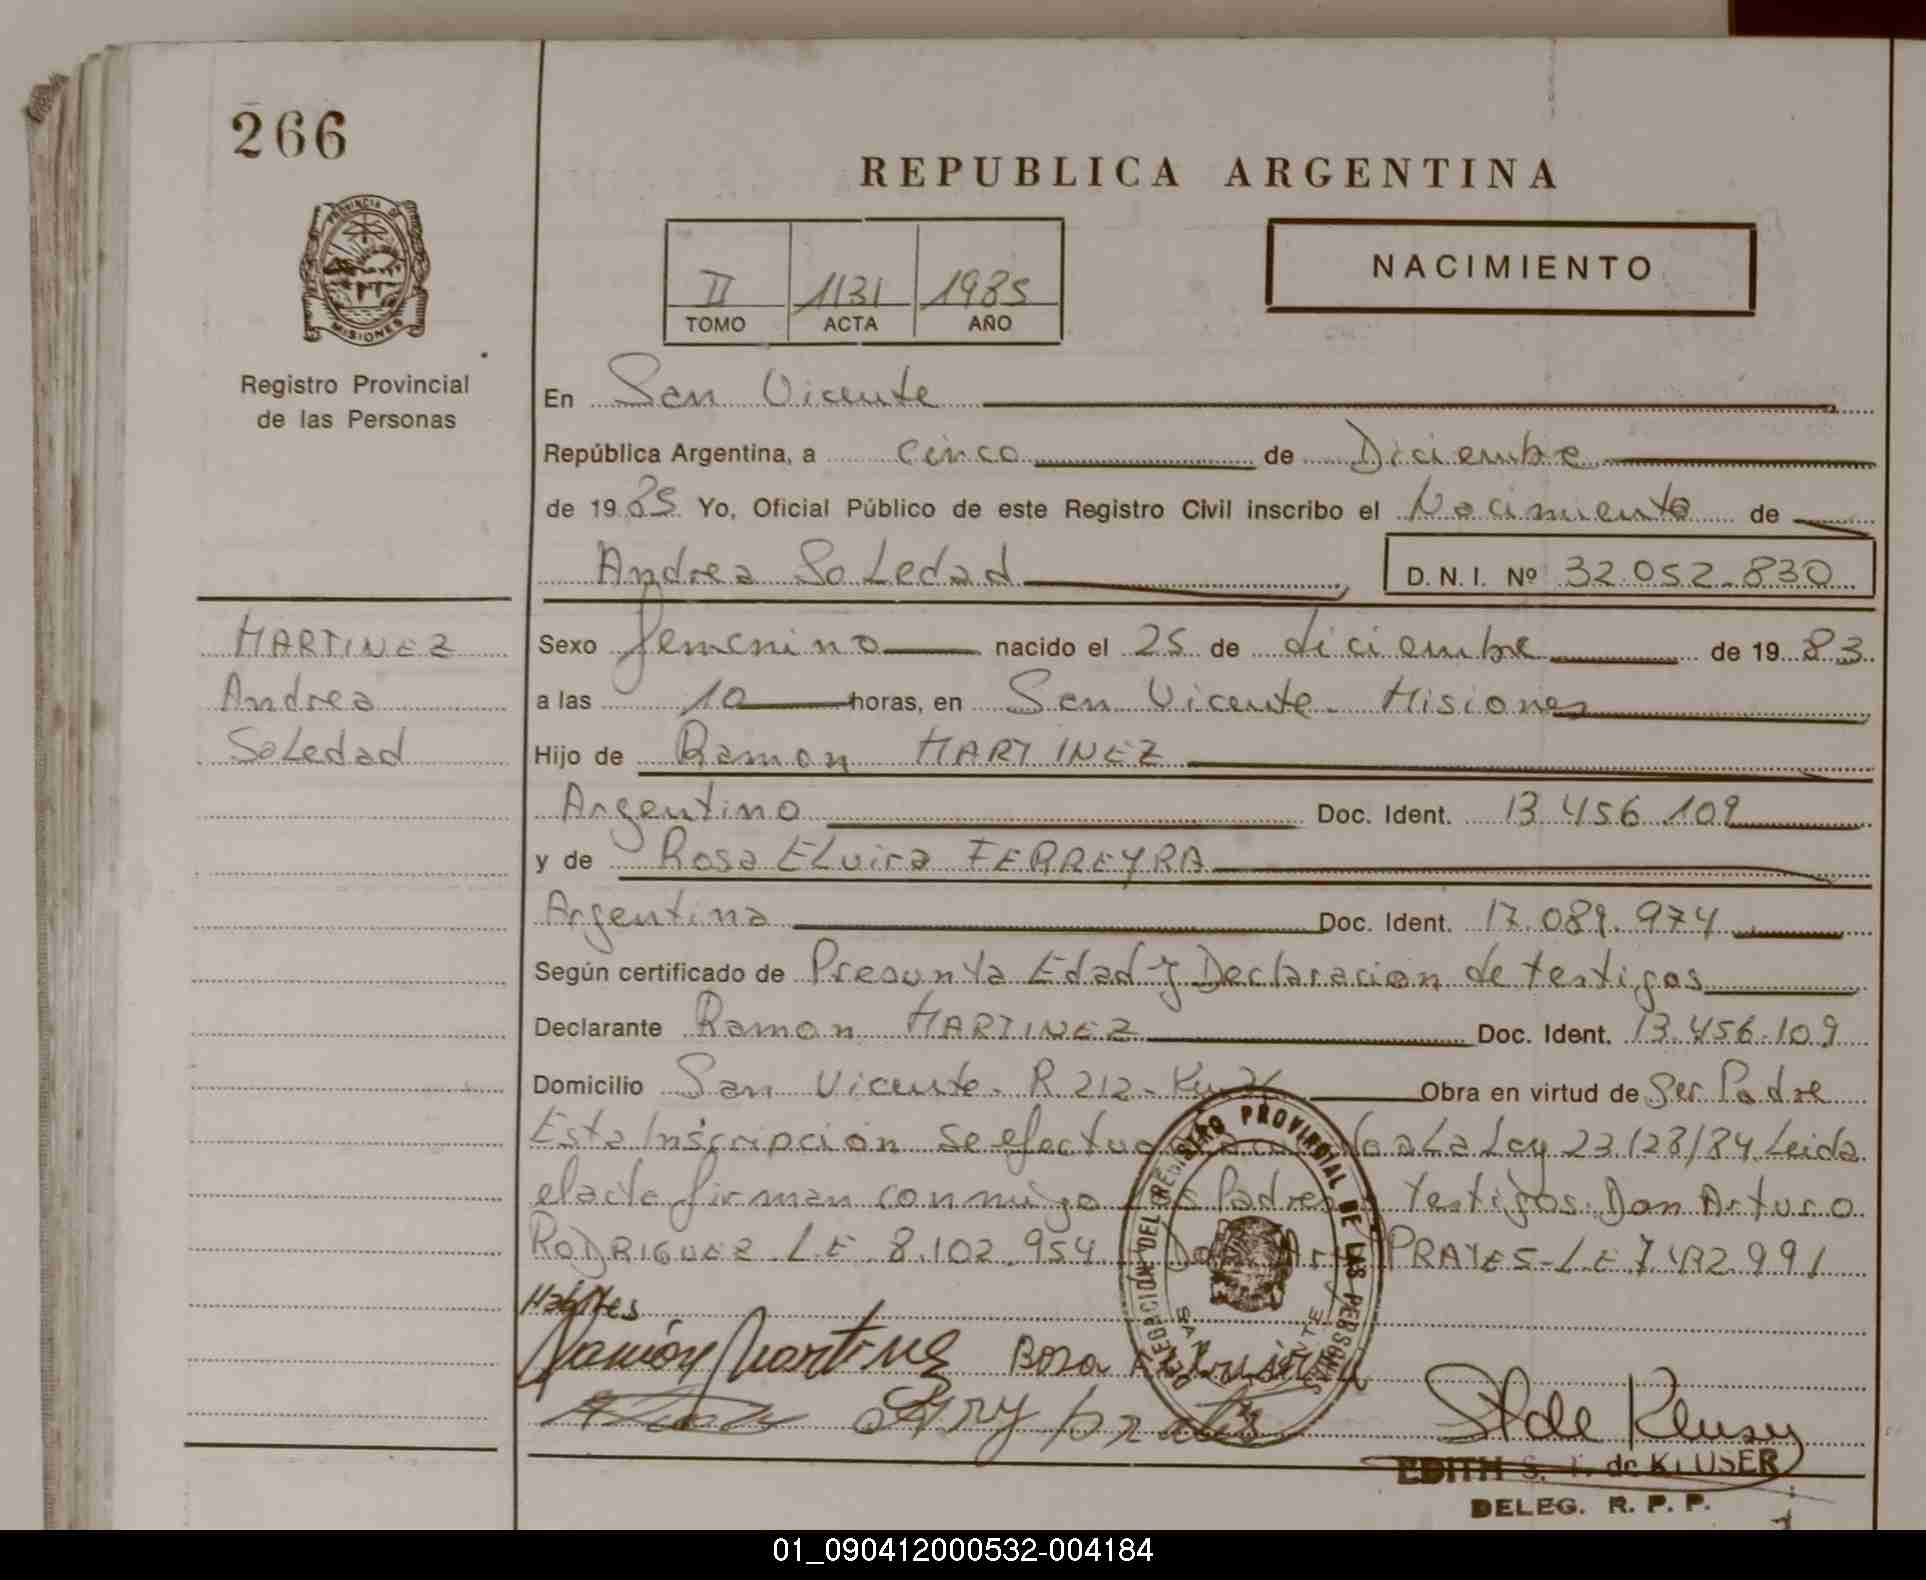 266
REPUBLICA ARGENTINA
PROVINCIA DE MISIONES
Registro Provincial
de las Personas
II 1131 1985
TOMO ACTA AÑO
NACIMIENTO
En San Vicente
República Argentina, a cinco de Diciembre
de 1985 Yo, Oficial Público de este Registro Civil inscribo el Nacimiento de
Andrea Soledad D. N. I. Nº 32.052.830
MARTINEZ
Andrea
Soledad
Sexo femenino nacido el 25 de diciembre de 1983
a las 10 horas, en San Vicente. Misiones
Hijo de Ramon MARTINEZ
Argentino Doc. Ident. 13.456.109
y de Rosa ELvira FERREYRA
Argentina Doc. Ident. 17.089.974
Según certificado de Presunta Edad y Declaracion de testigos
Declarante Ramon MARTINEZ Doc. Ident. 13.456.109
Domicilio San Vicente - R.212 - Obra en virtud de Ser Padre
Esta Inscripción se efectua a La Ley 23.128/84. Leida
el acta firman conmigo Padres testigos: Don Arturo
RODRIGUEZ L.E 8.102.954 PRATES - L.E 7.492.991
Habiles
Ramón Martinez Rosa
DELEGACIÓN DEL REGISTRO PROVINCIAL DE LAS PERSONAS
SAN VICENTE
S T de Kluser
EDITH S. T. de KLUSER
DELEG. R. P. P.
01_090412000532-004184